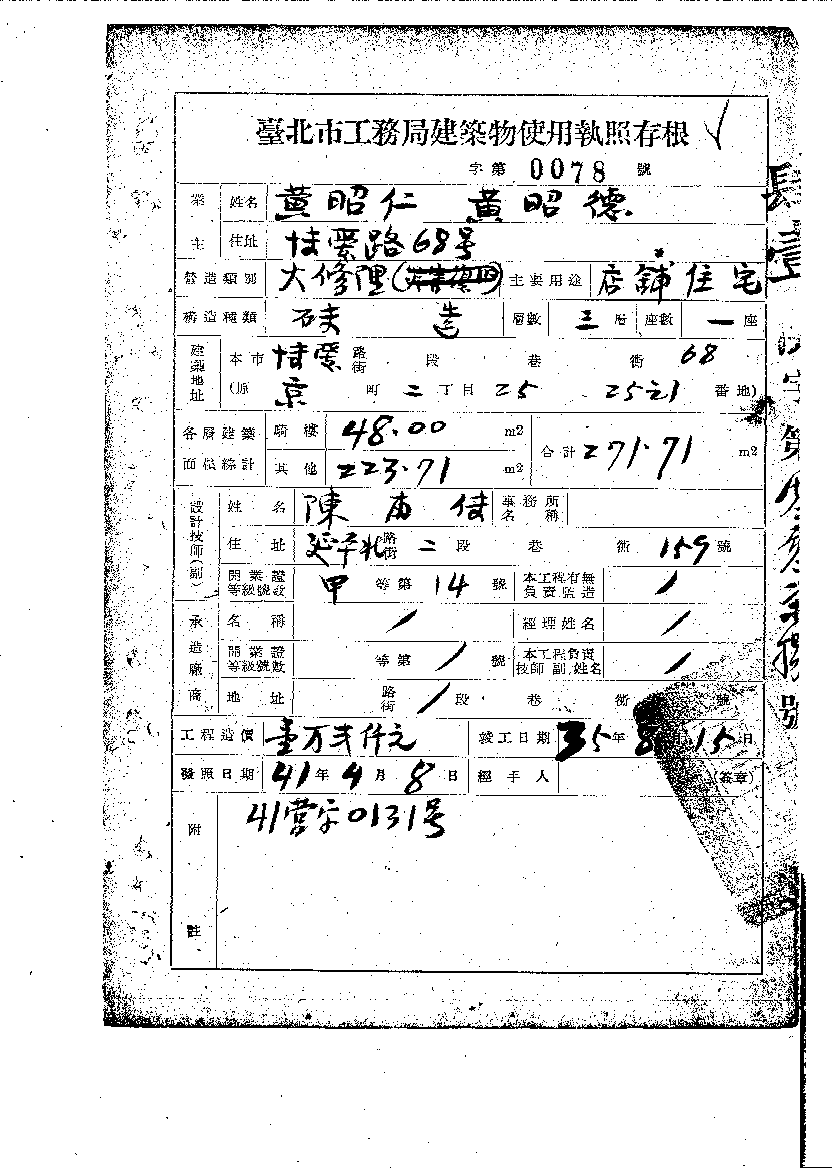 臺北市工務局建築物使用執照存根
字第 0078 號
業主 姓名 黃昭仁 黃昭德
住址 博愛路68号
營造類別 大修理 主要用途 店舖住宅
構造種類 磚造 層數 三層 座數 一座
建築地址 本市 博愛 路街 段 巷 衖 68
(原 京 町 二 丁目 25 25之1 番地)
各層建築面積綜計 騎樓 48.00 m2 合計 271.71 m2
其他 223.71 m2
設計技師(副) 姓名 陳 事務所名稱
住址 延平北 路街 二 段 巷 衖 159 號
開業證等級號數 甲 等第 14 號 本工程有無負責監造 /
承造廠商 名稱 / 經理姓名 /
開業證等級號數 等第 / 號 本工程負責技師副姓名 /
地址 路街 / 段 巷 衖 號
工程造價 壹万弍仟元 竣工日期 35年8月15日
發照日期 41年4月8日 經手人 (簽章)
附註 41營字0131号
肆壹 字第 號